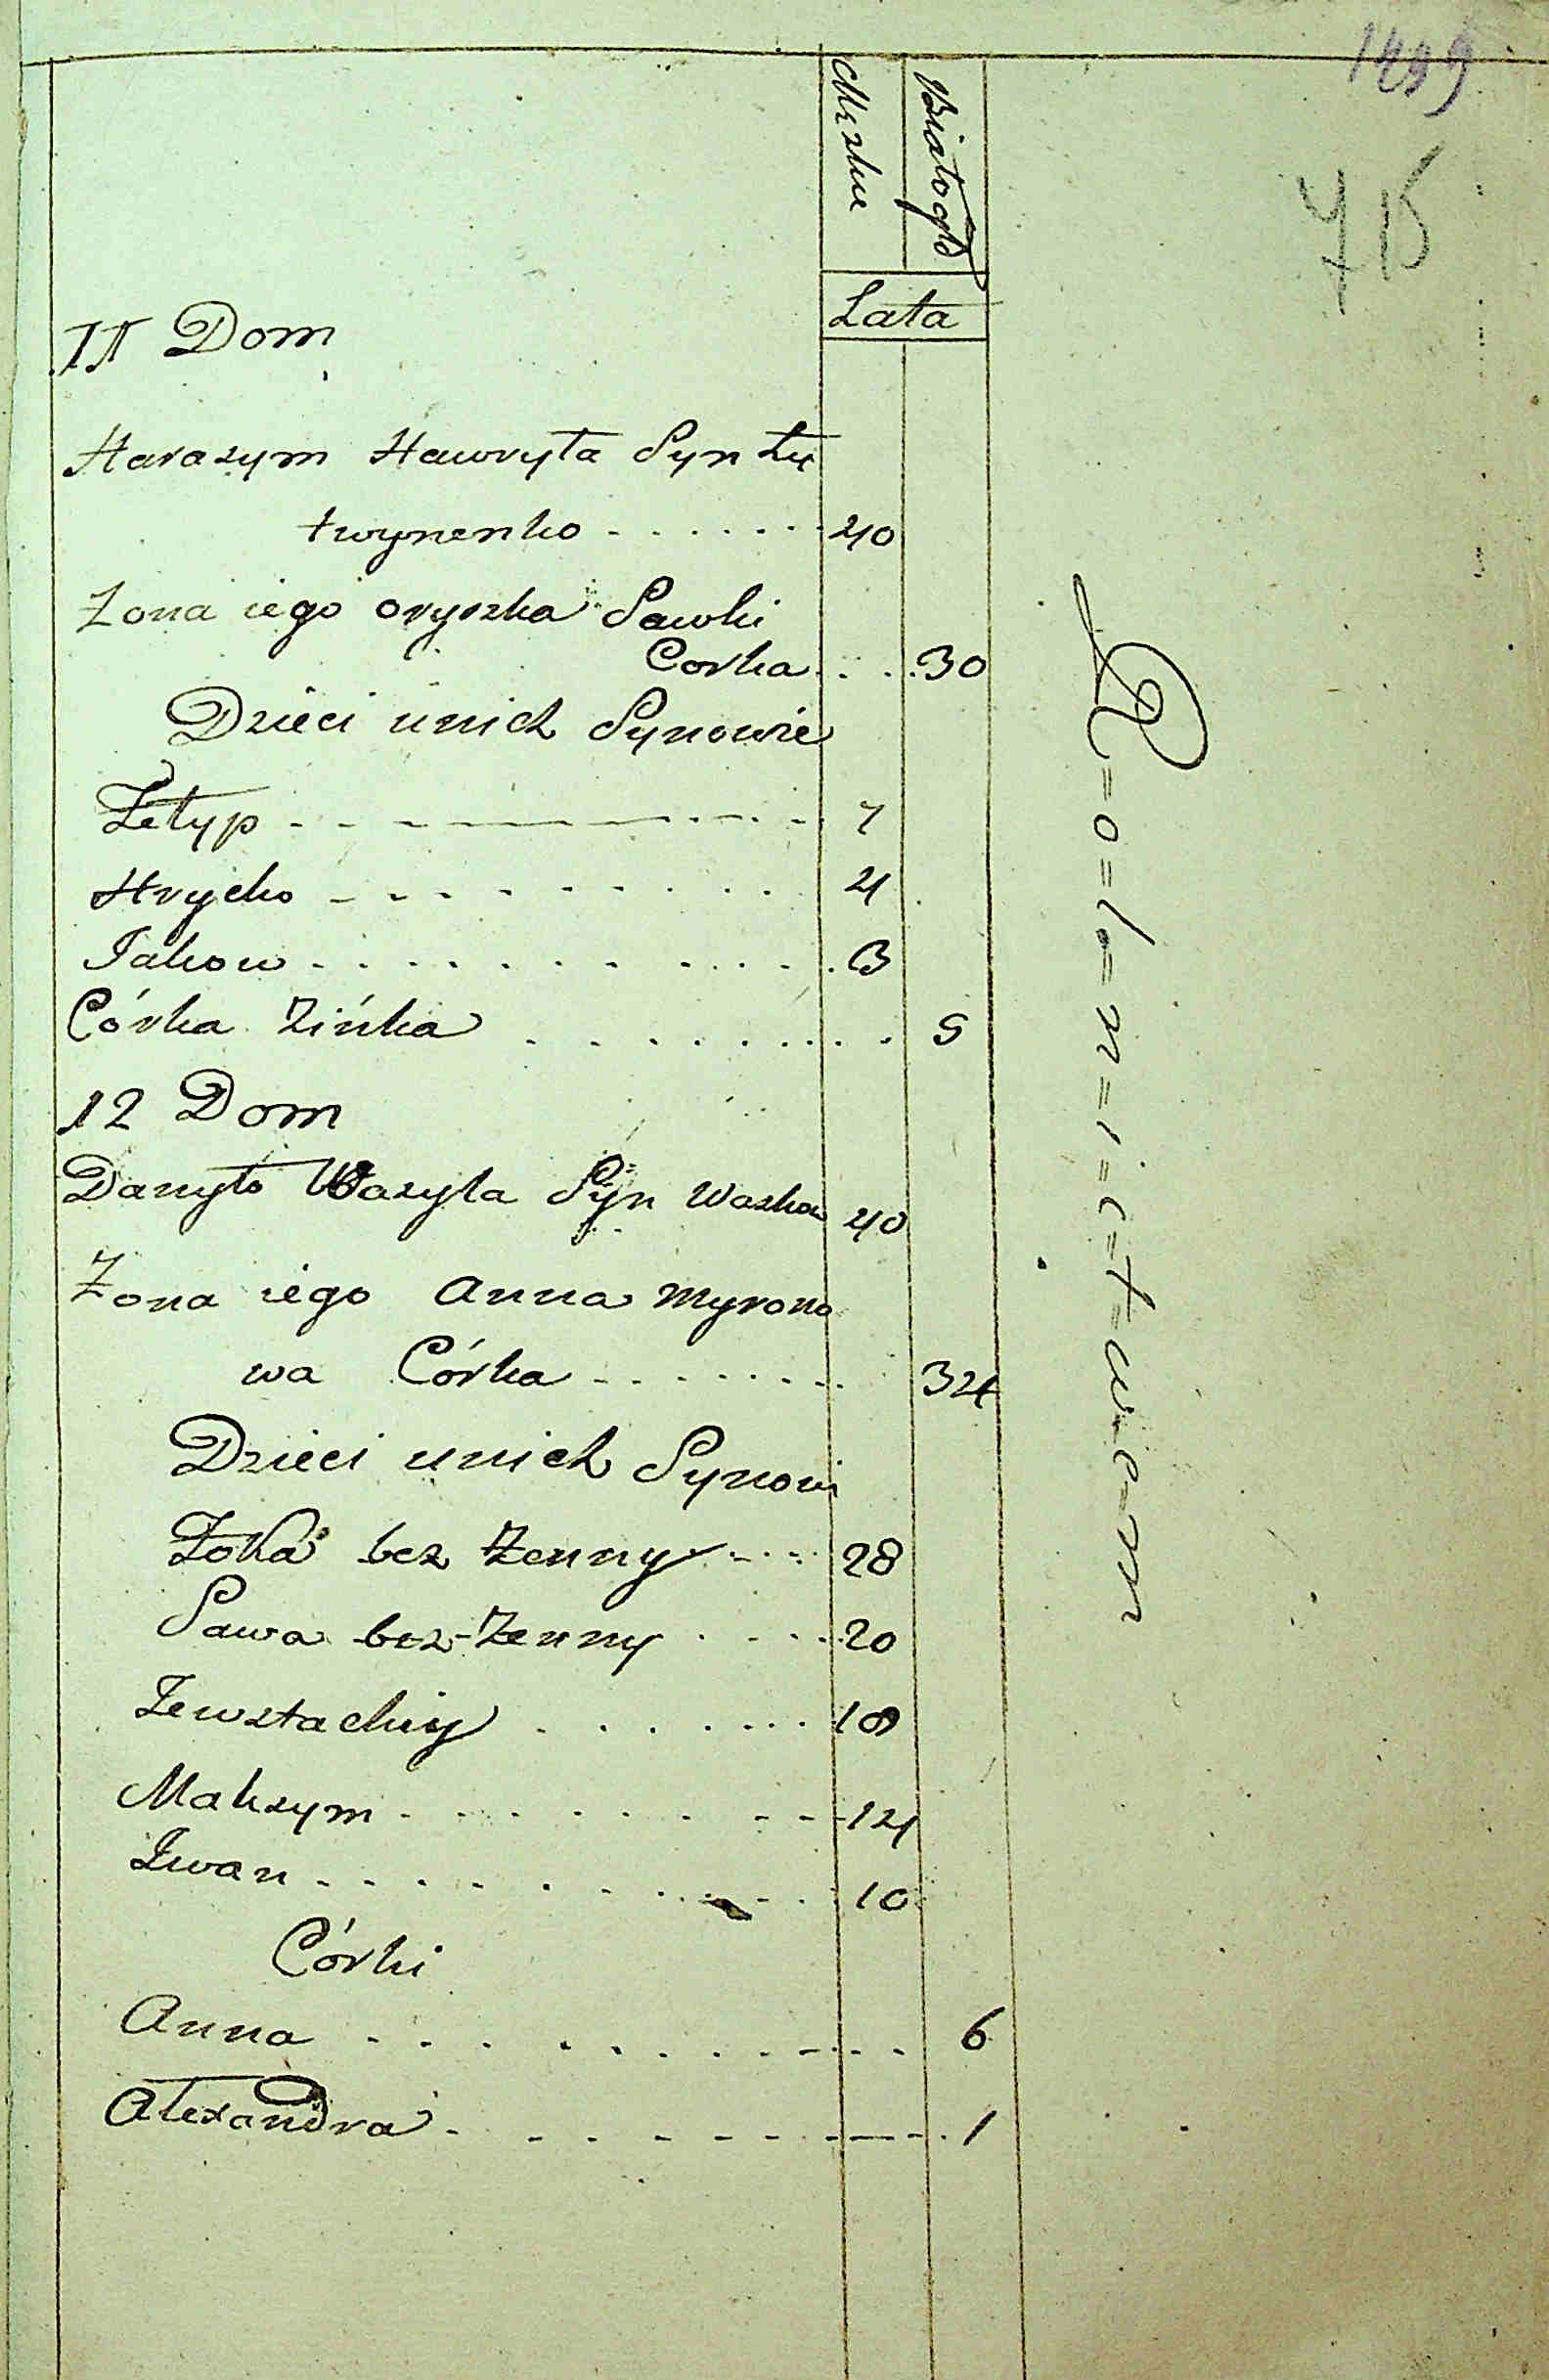 1499
715
Męzkie
Białogło
Lata
11 Dom
Harasym Hawryła Syn Ły
twynenko 40
Zona iego oryszka Sawki
Corka 30
Dzieci unich Synowie
Żełyp 7
Hrycko 4
Jakow 3
Córka Zińka 5
12 Dom
Danyło Wasyla Syn Waskow 40
Zona iego Anna Myrono
wa Córka 34
Dzieci unich Synowi
Łoka bez Żenny 28
Sawa bez-Żenny 20
Jewstachiy 18
Maksym 14
Iwan 10
Córki
Anna 6
Alexandra 1
R=o=b=n=i=c=t=w=o=m